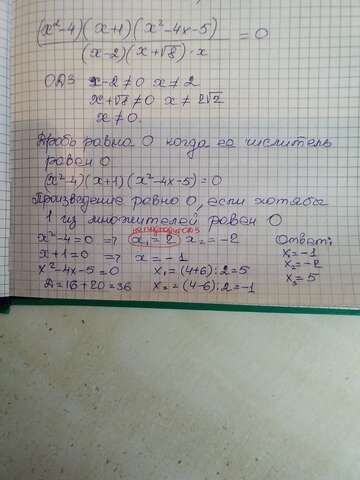 (x²-4)(x+1)(x²-4x-5) = 0
(x-2)(x+√8)·x
ОДЗ x-2≠0 x≠2
x+√8≠0 x≠2√2
x≠0.
Дробь равна 0 когда ее числитель
равен 0
(x²-4)(x+1)(x²-4x-5)=0
Произведение равно 0, если хотябы
1 из множителей равен 0
x²-4=0 => x₁=2 x₂=-2 Ответ:
x+1=0 => x=-1 x₁=-1
x²-4x-5=0 x₁=(4+6):2=5 x₂=-2
=16+20=36 x₂=(4-6):2=-1 x₃=5